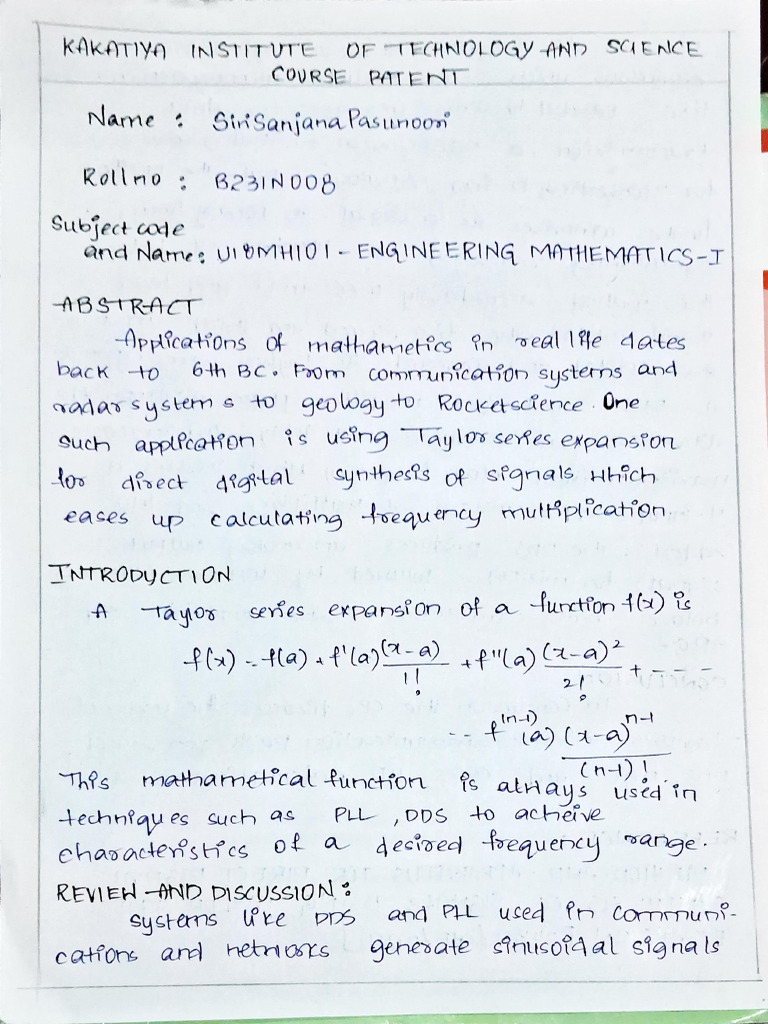 KAKATIYA INSTITUTE OF TECHNOLOGY AND SCIENCE
COURSE PATENT
Name : Siri Sanjana Pasunoori
Roll no : B23IN008
Subject code
and Name: U18MH101 - ENGINEERING MATHEMATICS-I
ABSTRACT
Applications of mathametics in real life dates
back to 6th BC. From communication systems and
radar systems to geology to Rocketscience. One
such application is using Taylor series expansion
for direct digital synthesis of signals which
eases up calculating frequency multiplication.
INTRODUCTION
A Taylor series expansion of a function f(x) is
f(x) = f(a) + f'(a) (x-a)/1! + f''(a) (x-a)²/2! + - - -
-- f⁽ⁿ⁻¹⁾(a) (x-a)ⁿ⁻¹/(n-1)!
This mathametical function is always used in
techniques such as PLL, DDS to acheive
characteristics of a desired frequency range.
REVIEW AND DISCUSSION :
systems like DDS and PLL used in communi-
cations and networks generate sinusoidal signals